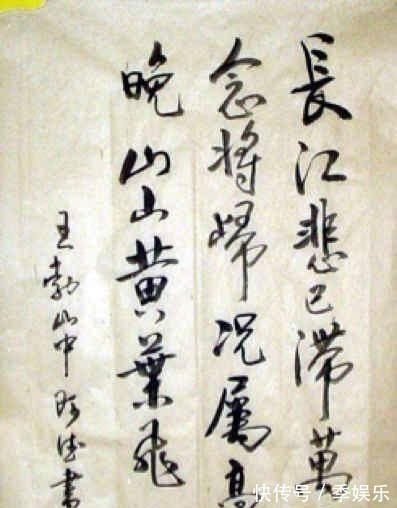 長江悲已滯萬
念將歸况屬高
晚山山黄葉飛
王勃山中書
快传号/季娱乐